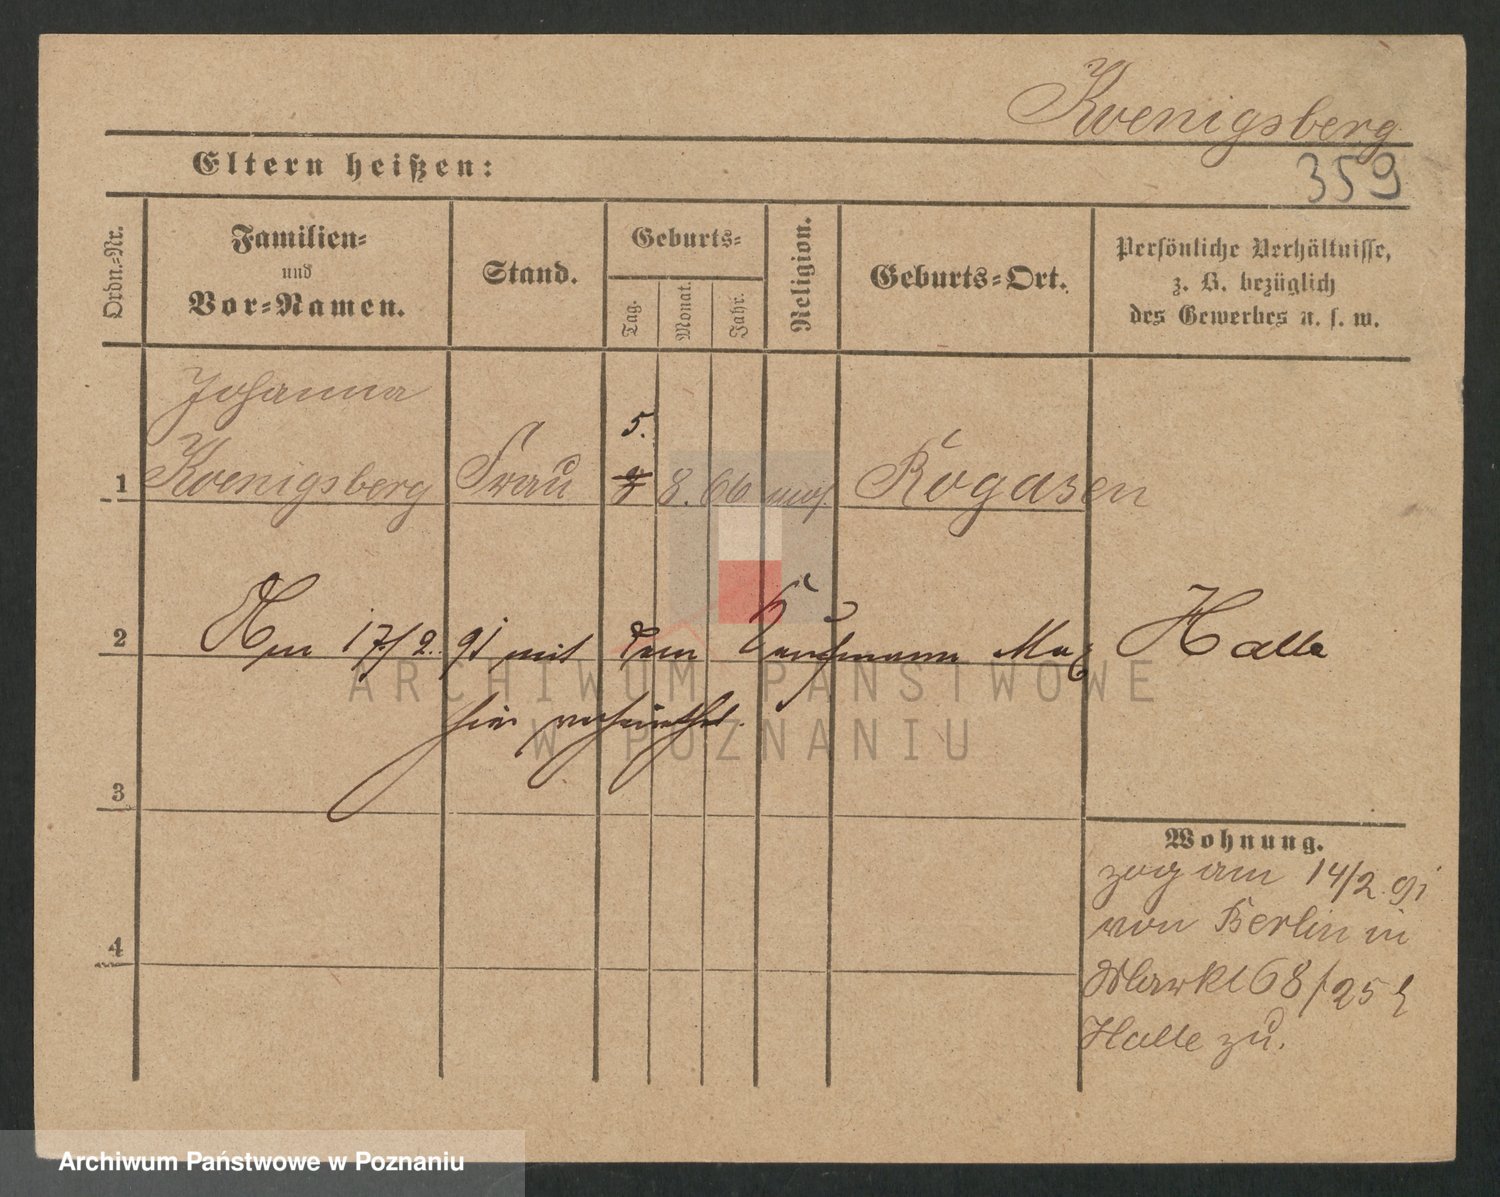 Koenigsberg
359
Eltern heißen:
Ordn.-Nr.
Familien-
und
Vor-Namen.
Stand.
Geburts-
Tag.
Monat.
Jahr.
Religion.
Geburts-Ort.
Persönliche Verhältnisse,
z. B. bezüglich
des Gewerbes u. s. w.
Johanna
5.
1 Koenigsberg Frau 8. 66 mos. Rogasen
2 Am 17/2. 91 mit dem Kaufmann Max Halle
hier verheirathet.
3
Wohnung.
zog am 14/2. 91
von Berlin in
Markt 68/25
Halle zu.
4
ARCHIWUM PAŃSTWOWE
W POZNANIU
Archiwum Państwowe w Poznaniu